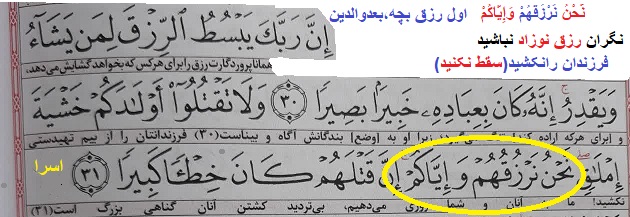 نَحْنُ نَرْزُقُهُمْ وَإِيَّاكُمْ اول رزق بچه،بعدوالدین
نگران رزق نوزاد نباشید
فرزندان رانکشید(سقط نکنید)
إِنَّ رَبَّكَ يَبْسُطُ ٱلرِّزْقَ لِمَن يَشَآءُ
همانا پروردگارت رزق را برای هرکس که بخواهد گشایش می‌دهد،
وَيَقْدِرُ إِنَّهُۥ كَانَ بِعِبَادِهِۦ خَبِيرًۢا بَصِيرًا ﴿٣٠﴾ وَلَا تَقْتُلُوٓا۟ أَوْلَٰدَكُمْ خَشْيَةَ
و برای هرکه اراده کند زیرا او به (وضع) بندگانش آگاه و بیناست(۳۰) فرزندانتان را از بیم تهیدستی
إِمْلَٰقٍ نَّحْنُ نَرْزُقُهُمْ وَإِيَّاكُمْ إِنَّ قَتْلَهُمْ كَانَ خِطْـًٔا كَبِيرًا ﴿٣١﴾ اسرا
نکشید! ما آنان و شما روزی می‌دهیم، بی‌تردید کشتن آنان گناهی بزرگ است(۳۱)